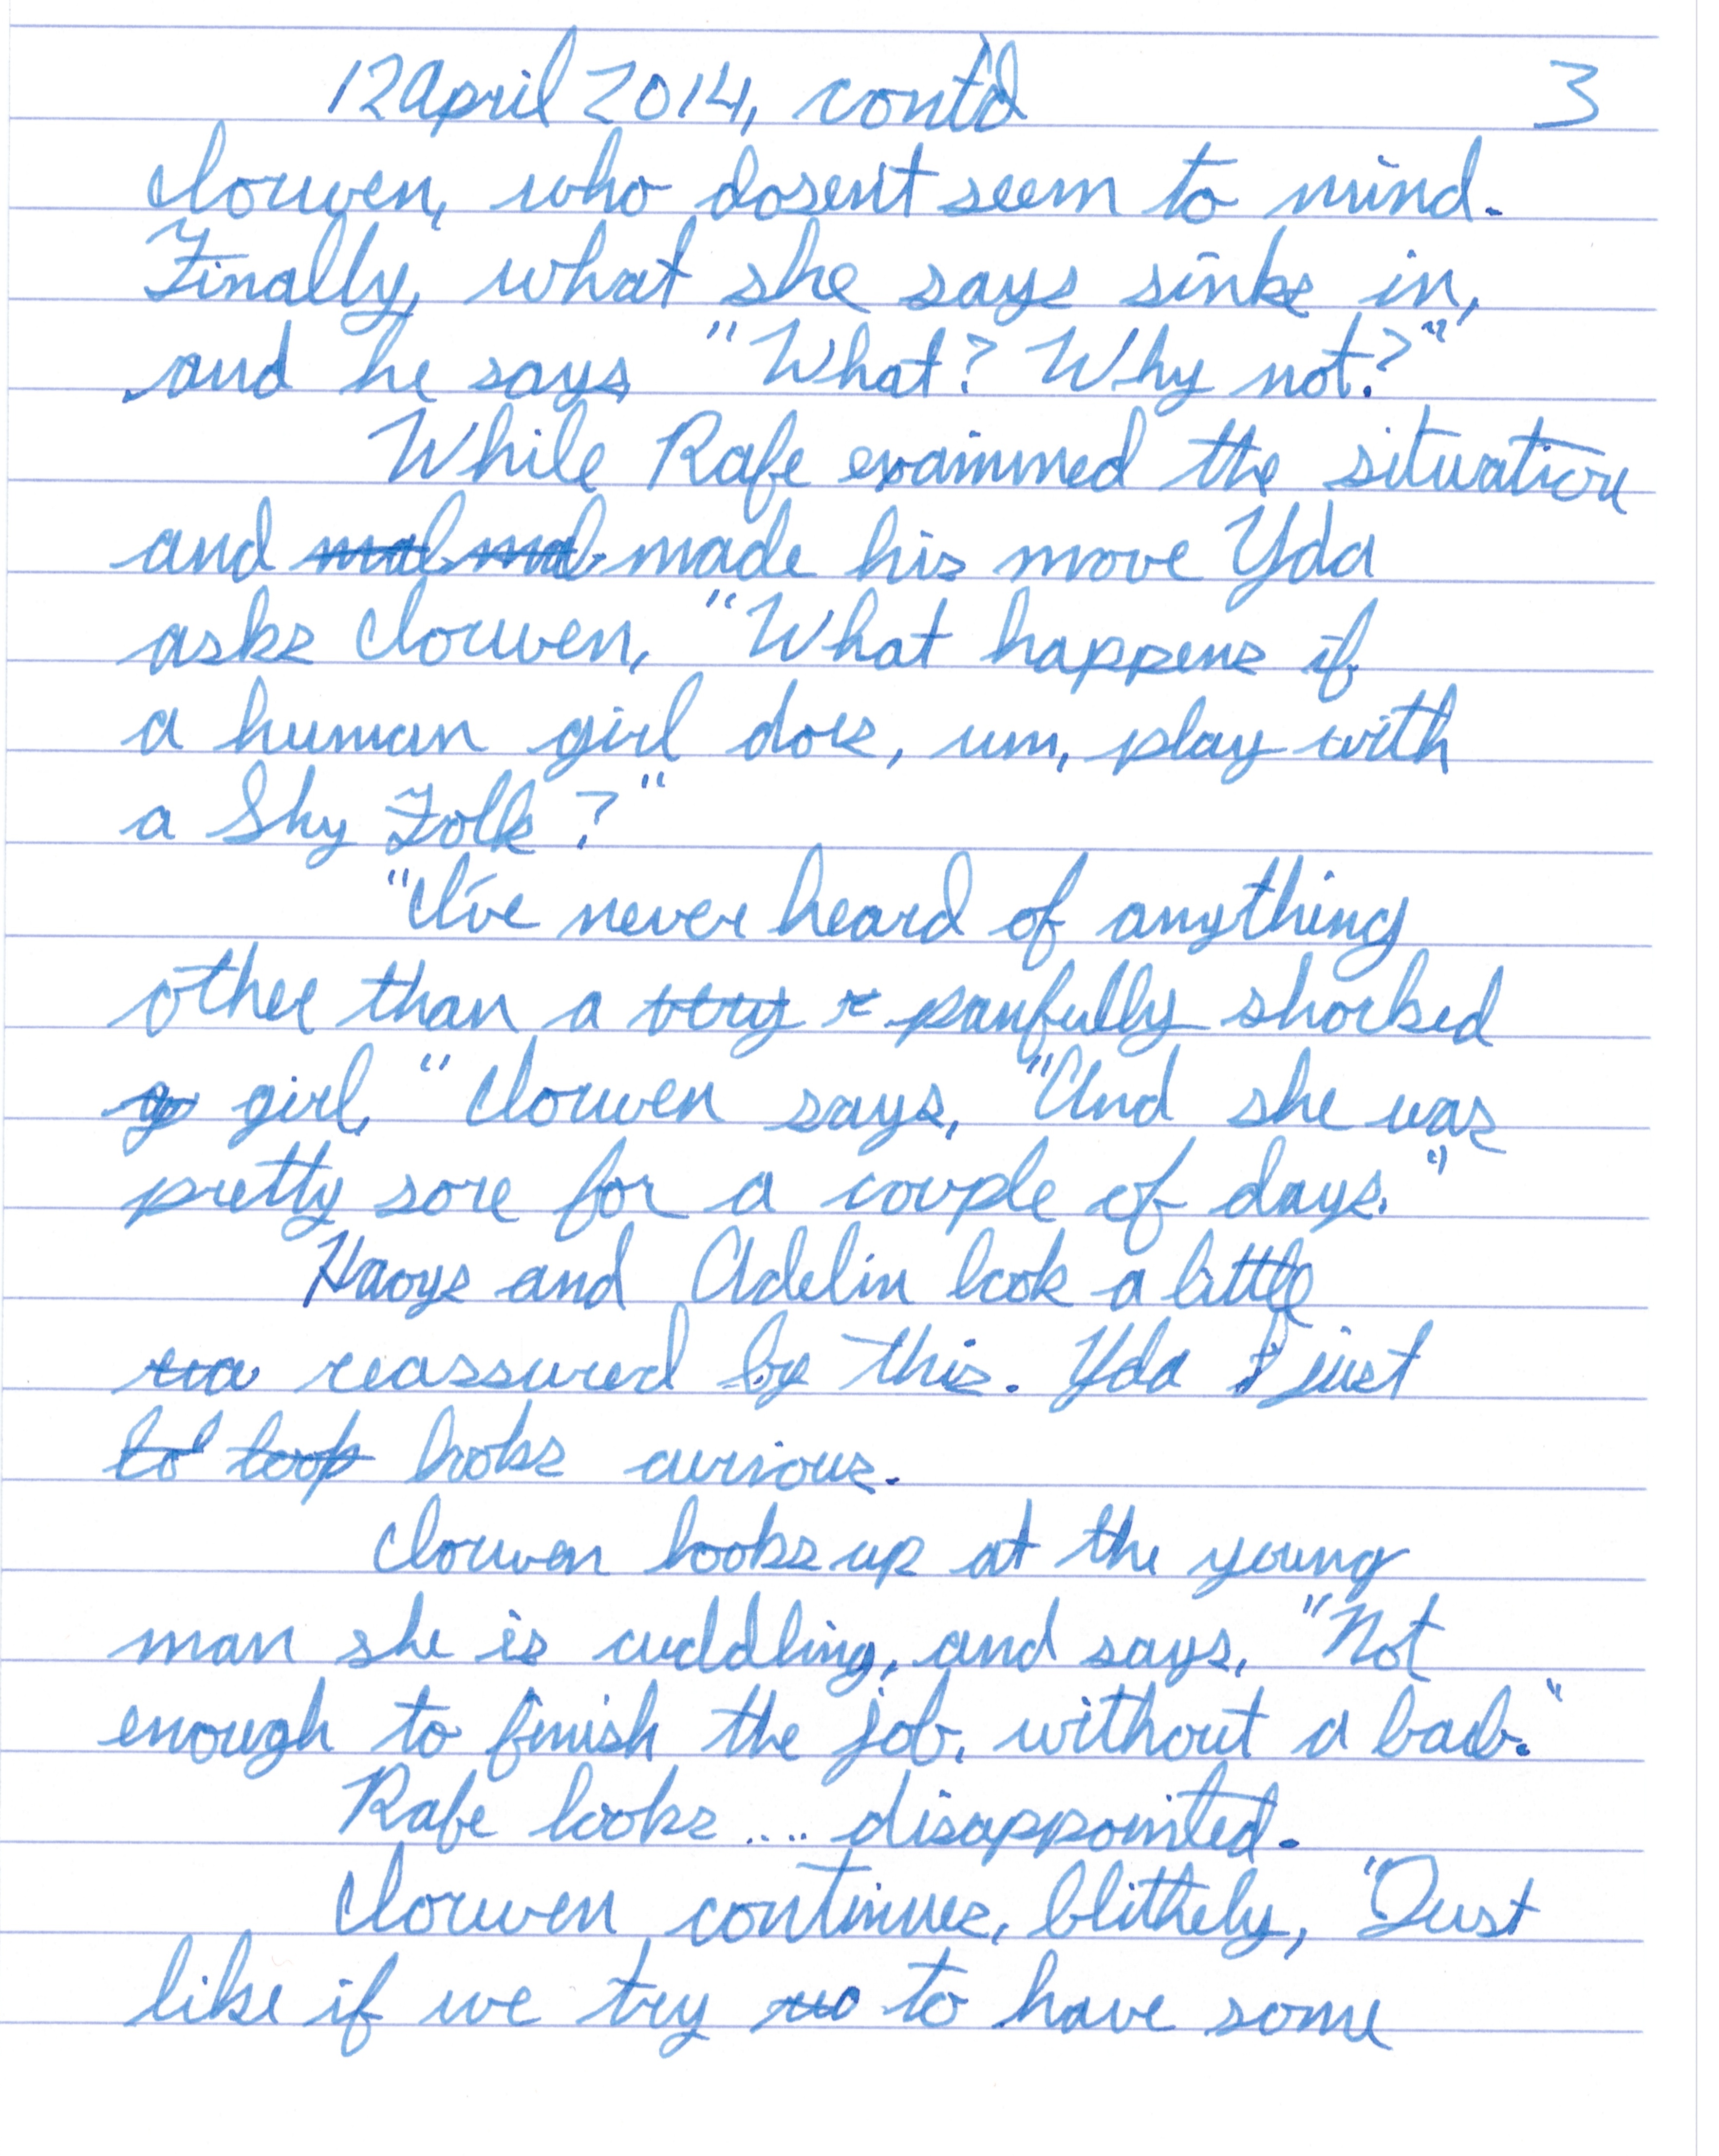 12 April 2014, cont'd 3
Iorwen, who dosen't seem to mind.
Finally, what she says sinks in,
and he says "What? Why not?"
While Rafe examined the situation
and made his move Yda
asks Iorwen, "What happens if
a human girl does, um, play with
a Shy Folk?"
"I've never heard of anything
other than a very painfully shocked
girl," Iorwen says, "And she was
pretty sore for a couple of days."
Haoys and Adelin look a little
reassured by this. Yda just
looks curious.
Iorwen looks up at the young
man she is cuddling, and says, "Not
enough to finish the job, without a
Rafe looks .... disappointed.
Iorwen continues, blithely, "Just
like if we try to have some